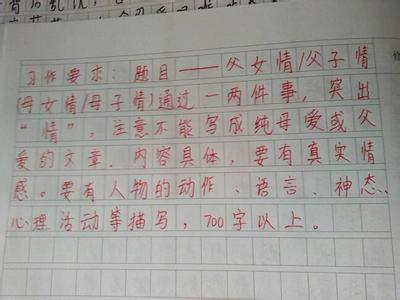 习作要求：题目——父女情/父子情
(母女情/母子情)通过一两件事，突出
“情”，注意不能写成纯母爱或父
爱的文章．内容具体，要有真实情
感。要有人物的动作、语言、神态、
心理活动等描写，700字以上。